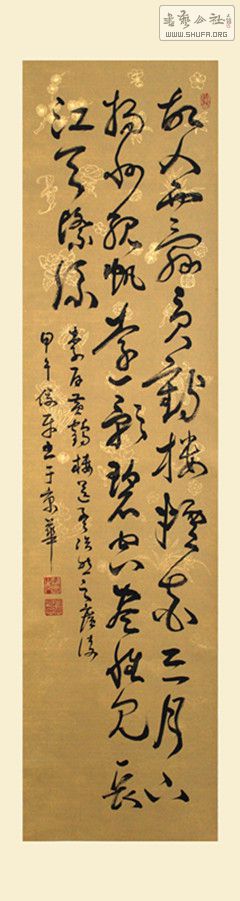 書藝公社
WWW.SHUFA.ORG
故人西辞黄鶴楼煙花三月下
揚州孤帆遠影碧空盡惟見長
江天際流
李白黄鶴楼送孟浩然之廣陵
甲午俊平书于京華